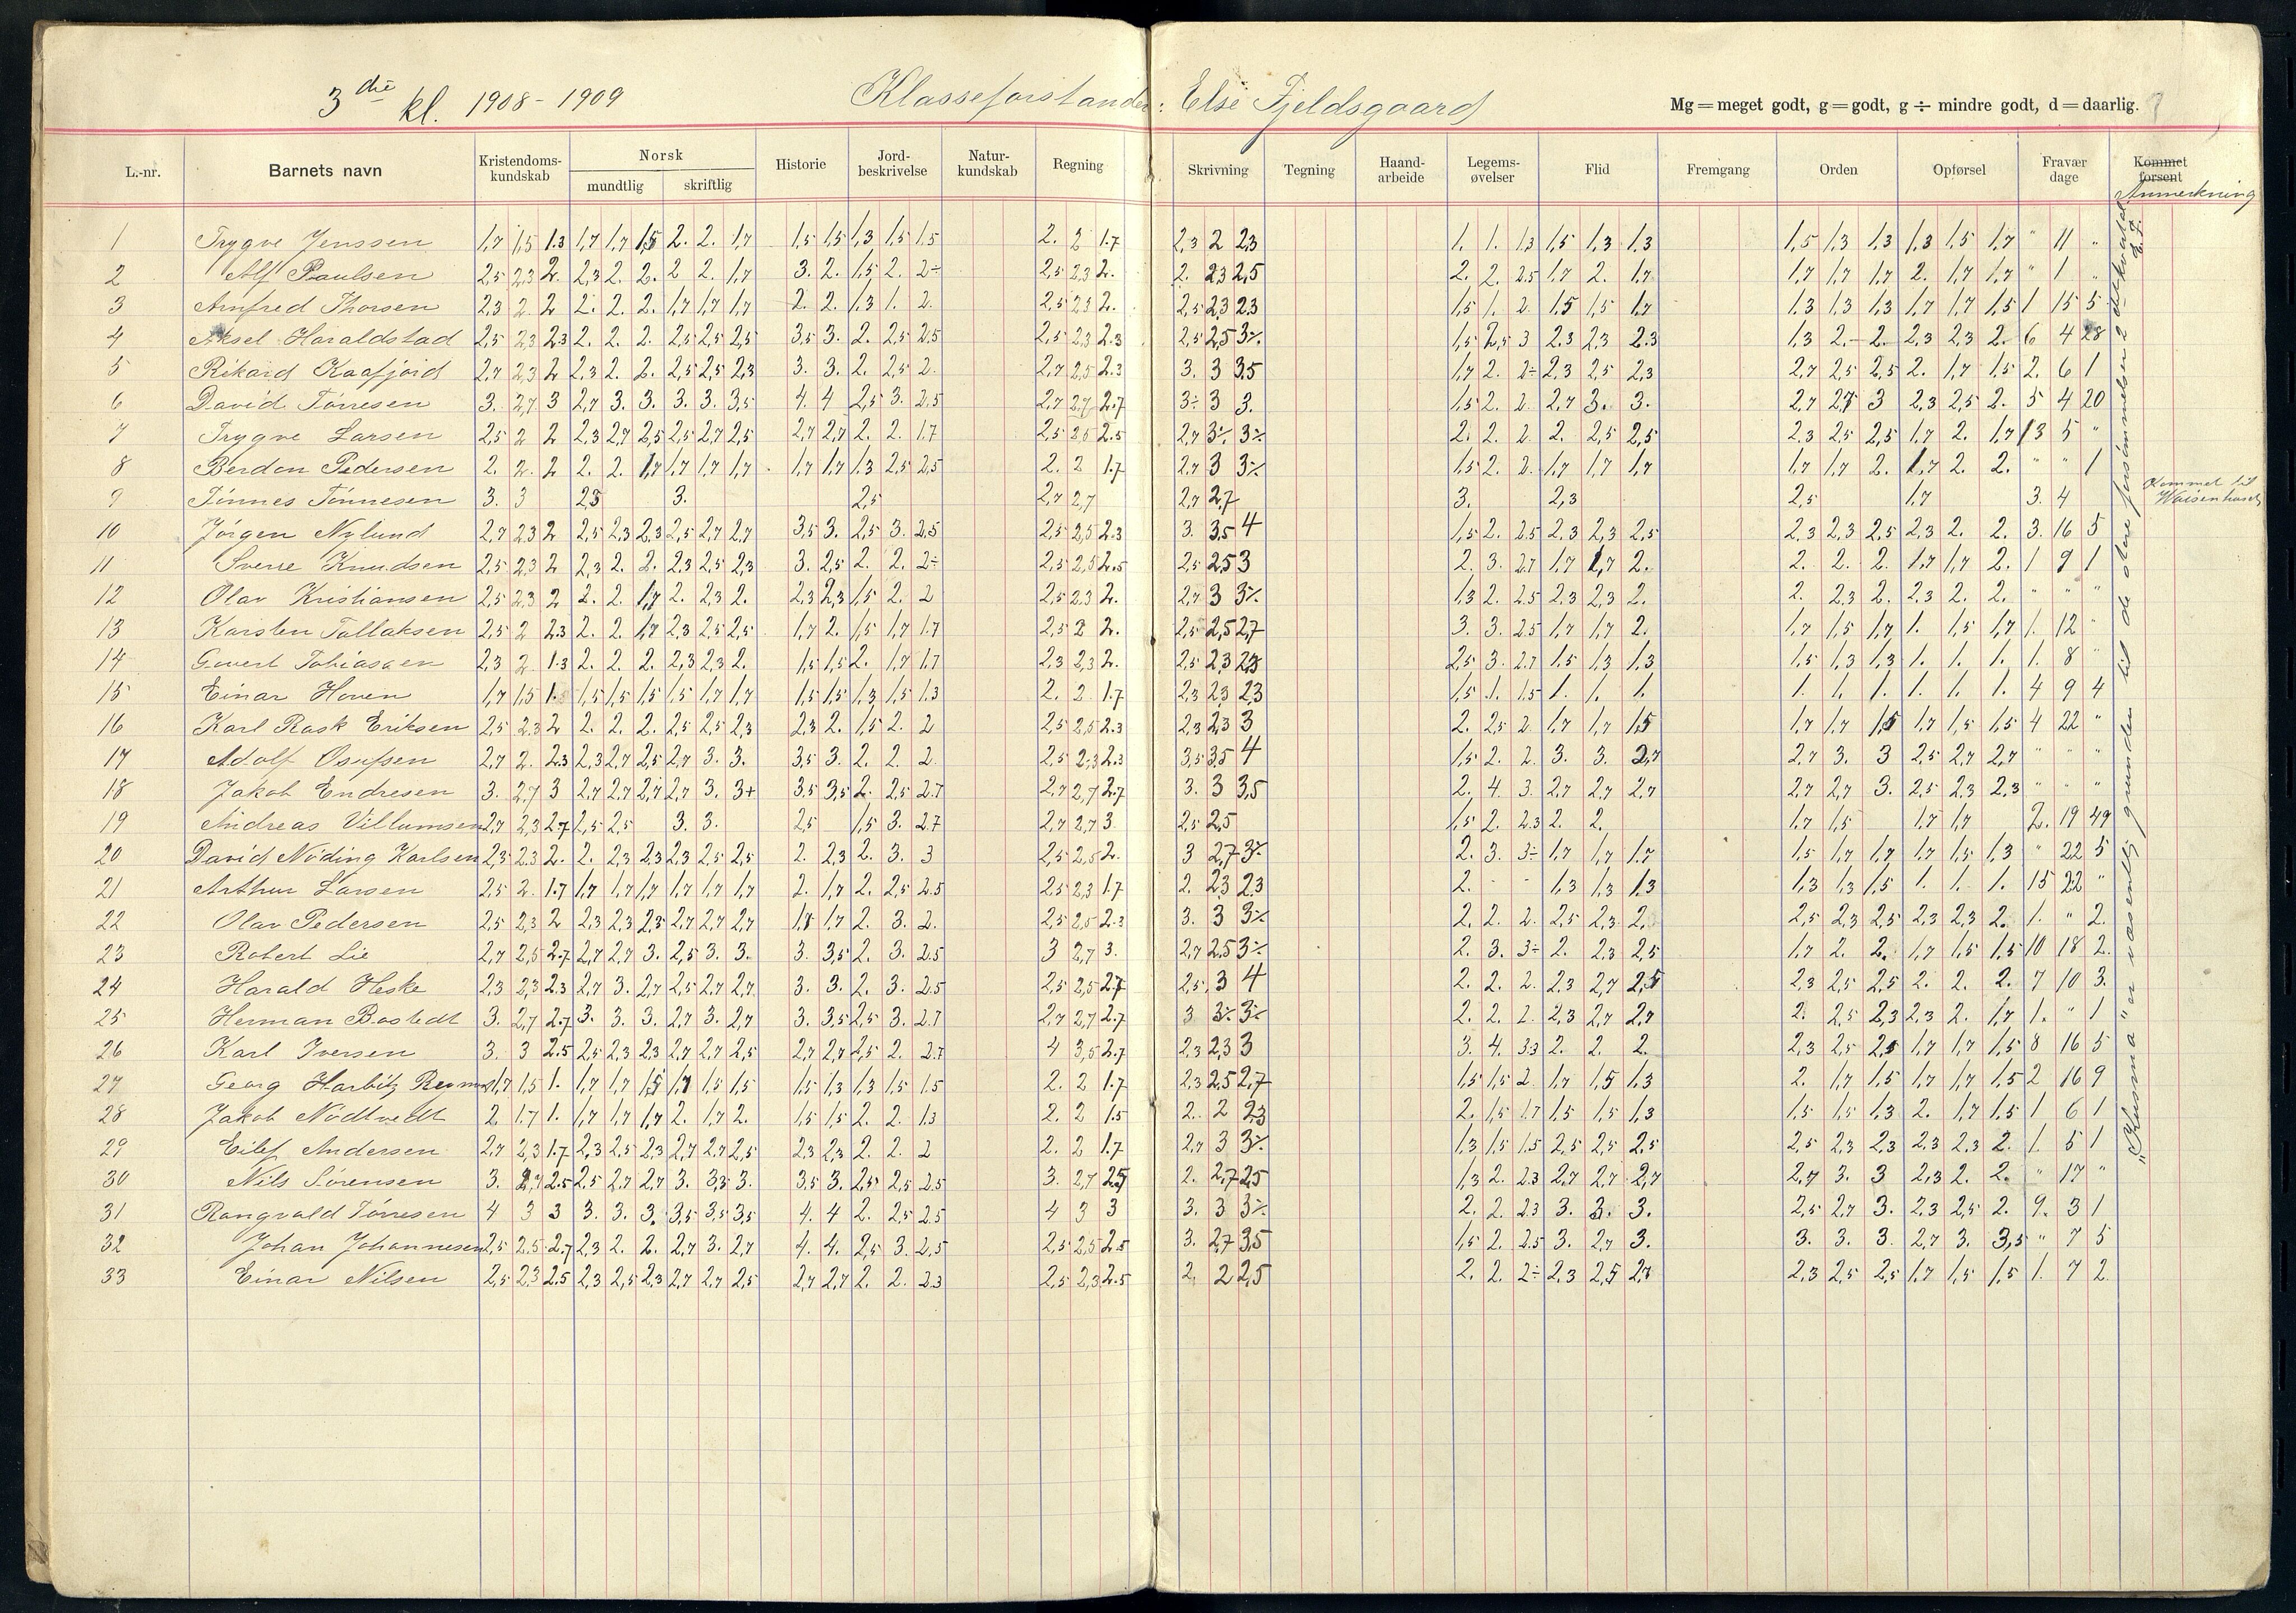 3die kl. 1908-1909 Klasseforstander: Else Fjeldsgaard Mg=meget godt, g=godt, g ÷ mindre godt, d=daarlig.
L.-nr. Barnets navn Kristendoms-kundskab Norsk mundtlig skriftlig Historie Jord-beskrivelse Natur-kundskab Regning Skrivning Tegning Haand-arbeide Legems-øvelser Flid Fremgang Orden Opførsel Fravær dage Kommet forsent Anmerkning
1 Trygve Jenssen 1,7 1,5 1.3 1,7 1,7 1,5 2. 2. 1,7 1,5 1,5 1,3 1,5 1.5 2. 2 1.7 2,3 2 2,3 1. 1. 1,3 1,5 1,3 1,3 1,5 1,3 1,3 1,3 1,5 1,7 " 11 "
2 Alf Paulsen 2,5 2,3 2. 2,3 2. 2. 2 2. 1,7 3. 2. 1,5 2. 2÷ 2,5 2,3 2. 2. 2,3 2,5 2. 2. 2.5 1,7 2. 1,7 1,7 1,7 1,7 2. 1,7 1,7 " 1 "
3 Arnfred Thorsen 2,3 2. 2 2. 2. 2. 1,7 1,7 1,7 2. 2. 1,3 1. 2. 2,5 2,3 2. 2,5 2,3 2,3 1,5 1. 2. 1,5 1,5 1,7 1,3 1,3 1,3 1,7 1,7 1,5 1 15 5
4 Aksel Haraldstad 2,5 2,3 2.3 2. 2. 2. 2,5 2,5 2,5 3,5 3. 2. 2,5 2.5 2,5 2,3 2.3 2,5 2,5 3÷ 1,5 2,5 3 2.3 2,3 2.3 1,3 2. 2. 2,3 2,3 2. 6 4 28
5 Rikard Kaafjord 2,7 2,3 2 2,3 2. 2. 2,5 2,5 2,3 3. 3. 2. 2,5 2. 2,7 2,5 2.3 3. 3 3,5 1,7 2. 2÷ 2,3 2,5 2,3 2,7 2,5 2,5 2. 1,7 1,5 2. 6 1
6 David Tørresen 3. 2,7 3 2,7 3. 3. 3. 3. 3,5 4. 4 2,5 3. 2.5 2,7 2,7 2.7 3÷ 3 3. 1,5 2. 2. 2,7 3. 3. 2,7 2,7 3 2,3 2,5 2. 5 4 20
7 Trygve Larsen 2,5 2 2 2,3 2,7 2,5 2,5 2,7 2,5 2,7 2,7 2. 2. 1.7 2,5 2,5 2.5 2,7 3÷ 3÷ 2. 2. 2. 2. 2,5 2,5 2.3 2,5 2,5 1,7 2. 1,7 13 5 "
8 Berdon Pedersen 2. 2. 2 2. 2. 1,7 1,7 1,7 1,7 1,7 1,7 1,3 2,5 2.5 2. 2 1.7 2,7 3 3÷ 1,5 2. 2. 1,7 1,7 1,7 1,7 1,7 2. 1,7 2. 2. " " 1
9 Tønnes Tønnesen 3. 3 2,5 3. 2,5 2,7 2,7 2,7 2,7 3. 2,3 2,5 1,7 3. 4 Kommet til Waisenhuset
10 Jørgen Nylund 2,7 2,3 2 2,5 2,3 2,3 2,5 2,7 2,7 3,5 3. 2,5 3. 2.5 2,5 2,5 2.3 3. 3,5 4 1,5 2. 2.5 2,3 2,3 2,5 2,3 2,3 2,5 2,3 2. 2. 3. 16 5
11 Sverre Knudsen 2,5 2,3 2 2,3 2. 2. 2,3 2,5 2,3 3. 2,5 2. 2. 2÷ 2,5 2,5 2.5 2,5 2,5 3 2. 3. 2.7 1,7 1,7 2. 2. 2. 2. 1,7 1,7 2. 1 9 1
12 Olav Kristiansen 2,5 2,3 2 2. 2. 1,7 2. 2,3 2. 2,3 2,3 1,5 2. 2 2,5 2,3 2. 2,7 3 3÷ 1,3 2. 2.5 2,3 2,3 2. 2. 2,3 2. 2,3 2. 2. " " "
13 Karsten Tallaksen 2,5 2 2.3 2. 2. 1,7 2,3 2,5 2,5 1,7 2. 1,5 1,7 1.7 2,5 2 2. 2,5 2,5 2,7 3. 3. 2.5 1,7 1,7 2. 1,7 1,5 1,7 1. 1,5 1,7 1. 12 "
14 Govert Tobiassen 2,3 2. 1.3 2. 2. 2. 2,3 2,3 2. 1,5 1,5 2. 1,7 1.7 2,3 2,3 2. 2,5 2,3 2,3 2,5 3. 2.7 1,5 1,3 1,3 1,5 1,3 1,3 1. 1. 1. 1. 8 "
15 Einar Hoven 1,7 1,5 1. 1,5 1,5 1,5 1,5 1,7 1,7 1,5 1,5 1,3 1,5 1.3 2. 2 1.7 2,3 2,3 2,3 1,5 1. 1.5 1. 1. 1. 1. 1. 1. 1. 1. 1. 4 9 4
16 Karl Rask Eriksen 2,5 2,3 2 2. 2. 2. 2,5 2,5 2,3 2,3 2. 1,5 2. 2 2,5 2,5 2.3 2,3 2,3 3 2. 2,5 2. 1,7 1,7 1,5 1,7 1,7 1,5 1,7 1,5 1,5 4 22 "
17 Adolf Osufsen 2,7 2. 2.3 2,3 2,7 2,5 2,7 3. 3. 3,5 3. 2. 2. 2. 2,5 2,3 2.3 3,5 3,5 4 1,5 2. 2. 3. 3. 2,7 2,7 3. 3 2,5 2,7 2,7 " " "
18 Jakob Endresen 3. 2,7 3 2,7 2,7 2,7 2,7 3. 3+ 3,5 3,5 2. 2,5 2.7 2,7 2,7 2.7 3. 3 3,5 2. 4. 3. 2,7 2,7 2,7 2,7 2,7 3. 2,5 2,3 2,3 " " "
19 Andreas Villumsen 2,7 2,3 2.7 2,5 2,5 3. 3. 2,5 1,5 3. 2.7 2,7 2,7 3 2,5 2,5 1,5 2. 2.3 2. 2. 1,7 1,5 1,7 1,7 2. 19 49
20 David Nøding Karlsen 2,3 2,3 2. 2. 2,3 2,3 2,3 2,5 2,5 2. 2,3 2. 3. 3 2,5 2,5 2. 3 2,7 3÷ 2. 3. 3÷ 1,7 1,7 1,7 1,5 1,7 1,7 1,7 1,5 1,3 " 22 5
21 Arthur Larsen 2,5 2. 1.7 1,7 1,7 1,7 1,7 1,7 1,7 2. 1,7 2. 2,5 2.5 2,5 2,3 1.7 2. 2,3 2,3 2. - - 1,3 1,3 1,3 1,3 1,3 1,5 1. 1. 1. 15 22 "
22 Olav Pedersen 2,5 2,3 2 2,3 2,3 2,3 2,7 2,7 2,7 1,7 2. 3. 2. 2,5 2,5 2.3 3. 3 3÷ 2. 2. 2. 2,5 2,3 2. 2,5 2,3 2,5 2,3 2,3 2. 1. " 2.
23 Robert Lie 2,7 2,5 2.7 2,7 2,7 3. 2,5 3. 3. 3. 3,5 2. 3. 2.5 3 2,7 3. 2,7 2,5 3÷ 2. 3. 3÷ 2. 2,3 2,5 1,7 2. 2. 1,7 1,5 1,5 10 18 2.
24 Harald Heske 2,3 2,3 2.3 2,7 3. 2,7 2,5 2,7 2,7 3. 3. 2. 3. 2.5 2,5 2,5 2.7 2,5 3 4 2. 2. 2. 2,3 2,7 2,5 2,3 2,5 2,5 2. 2. 2. 7 10 3.
25 Herman Bostedt 3. 2,7 2.7 3. 3. 3. 2,7 3. 2,7 3. 3,5 2,5 3. 2.7 2,7 2,7 2.7 3 3÷ 3÷ 2. 2. 2. 2,3 2,7 2,7 2. 2,5 2,3 2,3 2. 1,7 1. " 1
26 Karl Iversen 3. 3 2.5 2,5 2,3 2,3 2,7 2,7 2,5 2,7 2,7 2,5 2. 2.7 4 3,5 2.7 2,3 2,3 3 3. 4. 3.3 2. 2. 2. 2,3 2,5 2,5 1,7 1,7 1,5 8 16 5
27 Georg Harbitz 1,7 1,5 1. 1,7 1,7 1,5 1,7 1,5 1,5 1,5 1,3 1,3 1,5 1.5 2. 2 1.7 2,3 2,5 2,7 1,5 1,5 2. 1,7 1,5 1,3 2. 1,7 1,5 1,7 1,7 1,5 2 16 9
28 Jakob Nødtvedt 2. 1.7 1. 1,7 1,7 1,7 2. 1,7 2. 1,5 1,5 2. 2. 1.3 2. 2 1.5 2. 2 2,3 2. 1,5 1.7 1,5 1,5 1,3 1,5 1,5 1,3 2. 1,7 1,5 1 6 1
29 Eilef Andersen 2,7 2,3 1.7 2,3 2,5 2,3 2,7 2,7 2,5 2,3 2,3 2. 2. 2 2. 2 1.7 2,7 3 3÷ 1,3 1,5 1.5 2,5 2,5 2,5 2,5 2,3 2,3 2,3 2,3 2. 1. 5 1
30 Nils Sørensen 3. 2,7 2.5 2,5 2,7 2,7 3. 3,3 3. 3,5 3. 2,5 2,5 2.5 3. 2,7 2.5 2. 2,7 2,5 1,3 2. 2.3 2,7 2,7 2,7 2,7 3. 3 2,3 2. 2. " 17 "
31 Rangvald Tørresen 4 3 3 3. 3. 3. 3,5 3,5 3,5 4. 4 2. 2,5 2.5 4 3 3 3. 3 3÷ 2. 2. 2.3 3. 3. 3. 2,5 2,7 3. 2,3 2,5 2. 9. 3 1
32 Johan Johannesen 2,5 2.5 2.7 2,3 2. 2. 2,7 3. 2,7 4. 4. 2,5 3. 2.5 2,5 2,5 2.5 3. 2,7 3,5 1,5 2. 2.5 3. 2,7 3. 3. 3. 3. 2,7 3. 3,5 " 7 5
33 Einar Nilsen 2,5 2,3 2.5 2,3 2,5 2,3 2,7 2,7 2,5 2,7 2,7 2. 2. 2.3 2,5 2,3 2.5 2. 2 2,5 2. 2. 2÷ 2,3 2,5 2,7 2,3 2,5 2,5 1,7 1,5 1,5 1. 7 2.
"Kusma" er væsentlig grunden til de store forsømmelser 2det kvartal. E.F.